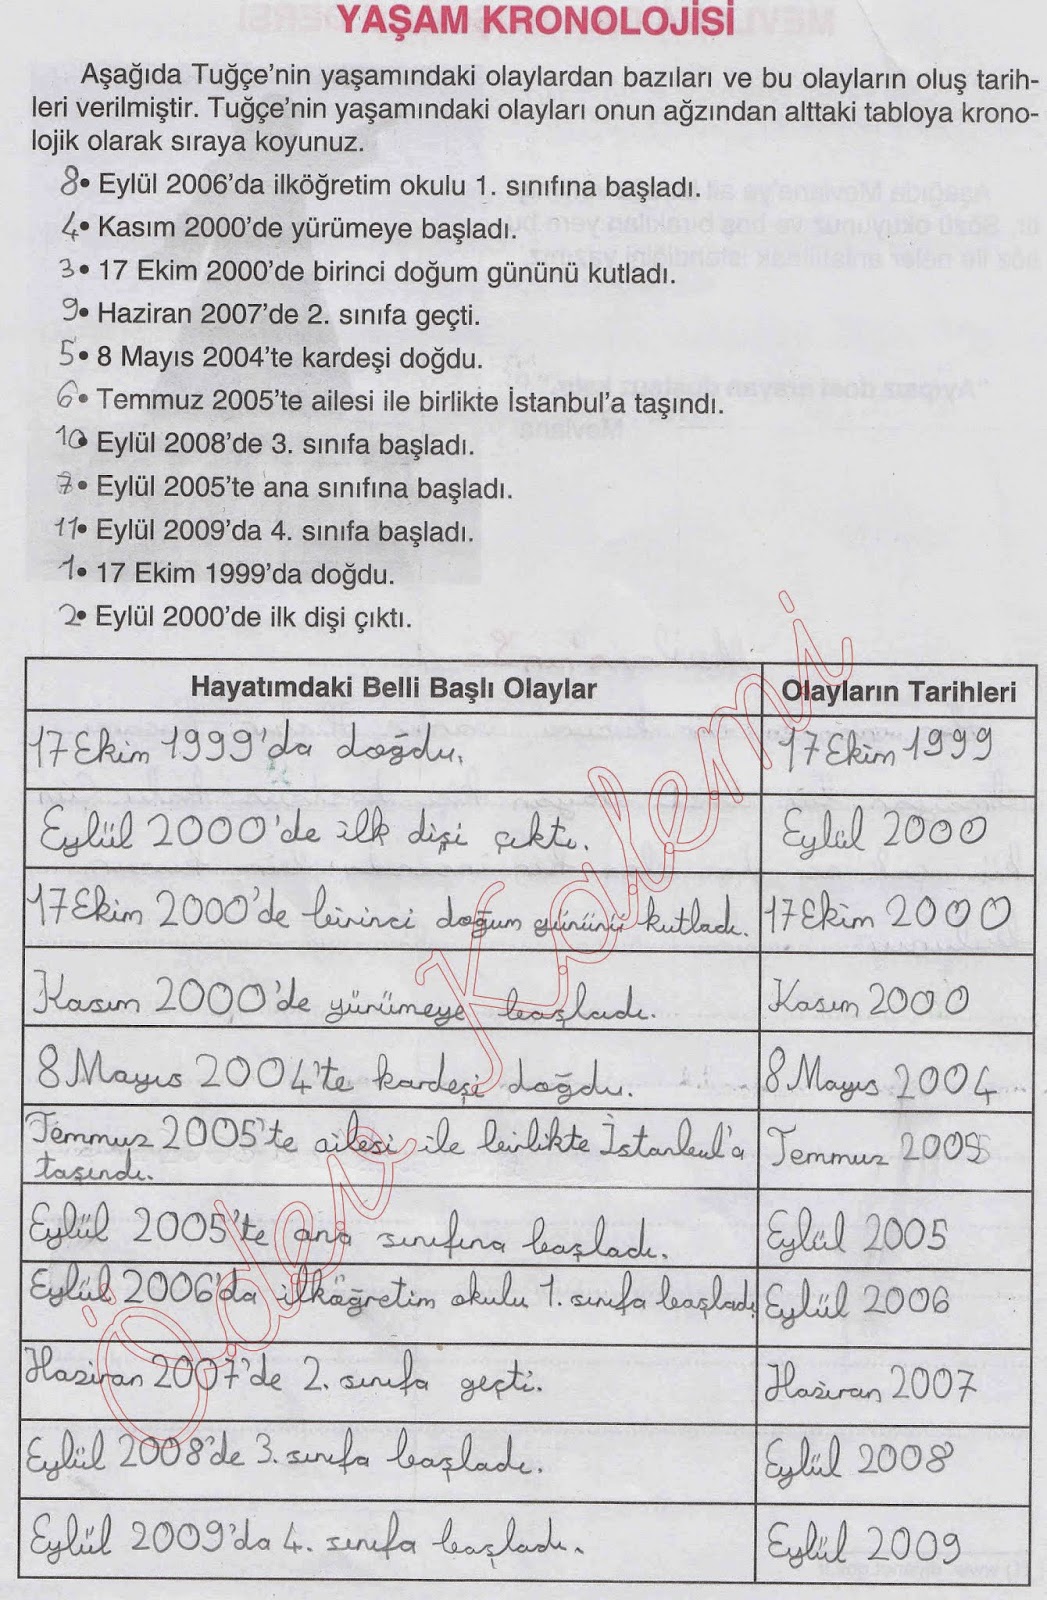 YAŞAM KRONOLOJİSİ
Aşağıda Tuğçe'nin yaşamındaki olaylardan bazıları ve bu olayların oluş tarih-
leri verilmiştir. Tuğçe'nin yaşamındaki olayları onun ağzından alttaki tabloya krono-
lojik olarak sıraya koyunuz.
8• Eylül 2006'da ilköğretim okulu 1. sınıfına başladı.
4• Kasım 2000'de yürümeye başladı.
3• 17 Ekim 2000'de birinci doğum gününü kutladı.
9• Haziran 2007'de 2. sınıfa geçti.
5• 8 Mayıs 2004'te kardeşi doğdu.
6• Temmuz 2005'te ailesi ile birlikte İstanbul'a taşındı.
10• Eylül 2008'de 3. sınıfa başladı.
7• Eylül 2005'te ana sınıfına başladı.
11• Eylül 2009'da 4. sınıfa başladı.
1• 17 Ekim 1999'da doğdu.
2• Eylül 2000'de ilk dişi çıktı.
Hayatımdaki Belli Başlı Olaylar Olayların Tarihleri
17 Ekim 1999'da doğdu. 17 Ekim 1999
Eylül 2000'de ilk dişi çıktı. Eylül 2000
17 Ekim 2000'de birinci doğum gününü kutladı. 17 Ekim 2000
Kasım 2000'de yürümeye başladı. Kasım 2000
8 Mayıs 2004'te kardeşi doğdu. 8 Mayıs 2004
Temmuz 2005'te ailesi ile birlikte İstanbul'a Temmuz 2005
taşındı.
Eylül 2005'te ana sınıfına başladı. Eylül 2005
Eylül 2006'da ilköğretim okulu 1. sınıfa başladı Eylül 2006
Haziran 2007'de 2. sınıfa geçti. Haziran 2007
Eylül 2008'de 3. sınıfa başladı. Eylül 2008
Eylül 2009'da 4. sınıfa başladı. Eylül 2009
Ödev Kalemi